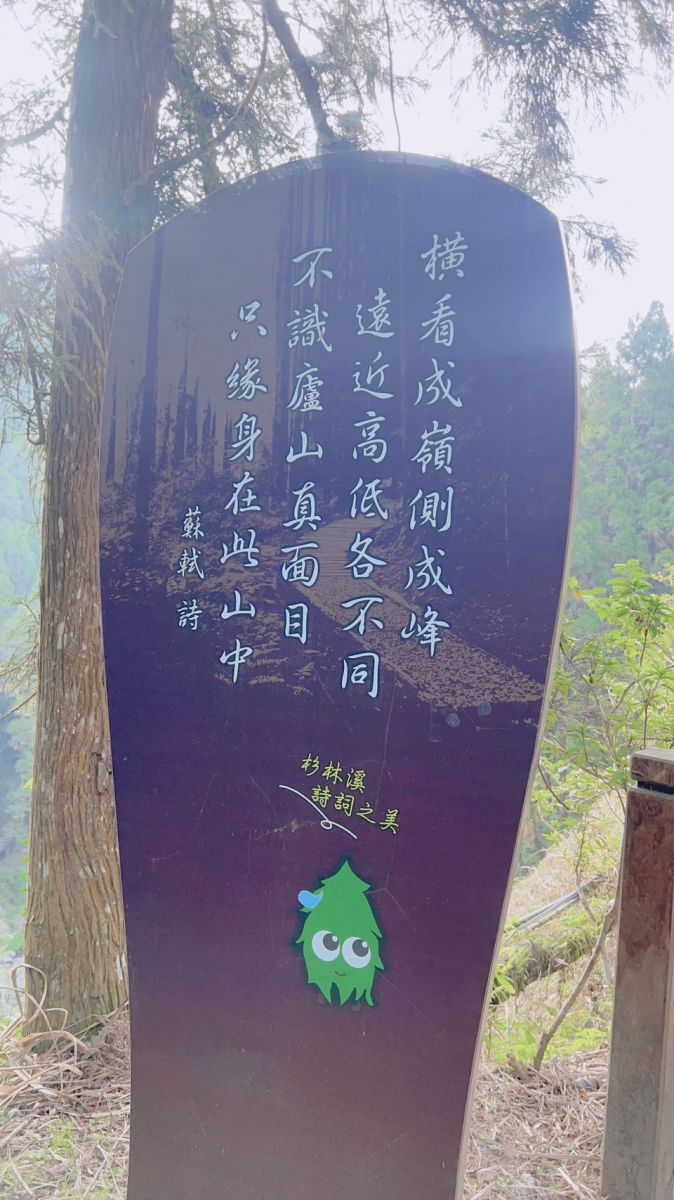 橫看成嶺側成峰
遠近高低各不同
不識廬山真面目
只緣身在此山中
蘇軾 詩
杉林溪
詩詞之美